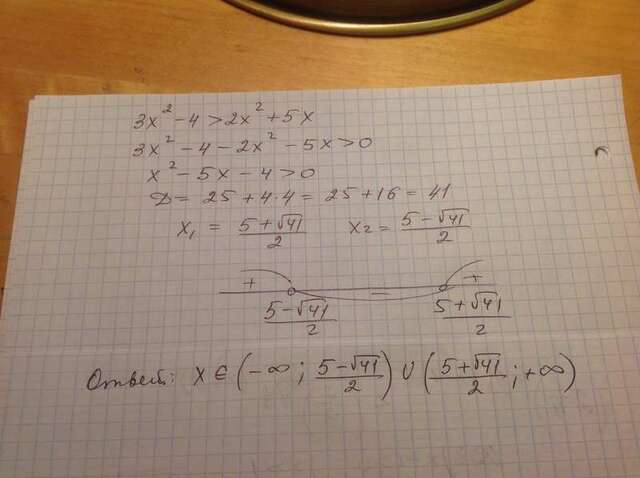 3x² - 4 > 2x² + 5x
3x² - 4 - 2x² - 5x > 0
x² - 5x - 4 > 0
D = 25 + 4·4 = 25 + 16 = 41
x₁ = (5+√41)/2   x₂ = (5-√41)/2
+ − +
(5-√41)/2   (5+√41)/2
Ответ: x ∈ (-∞; (5-√41)/2) ∪ ((5+√41)/2; +∞)